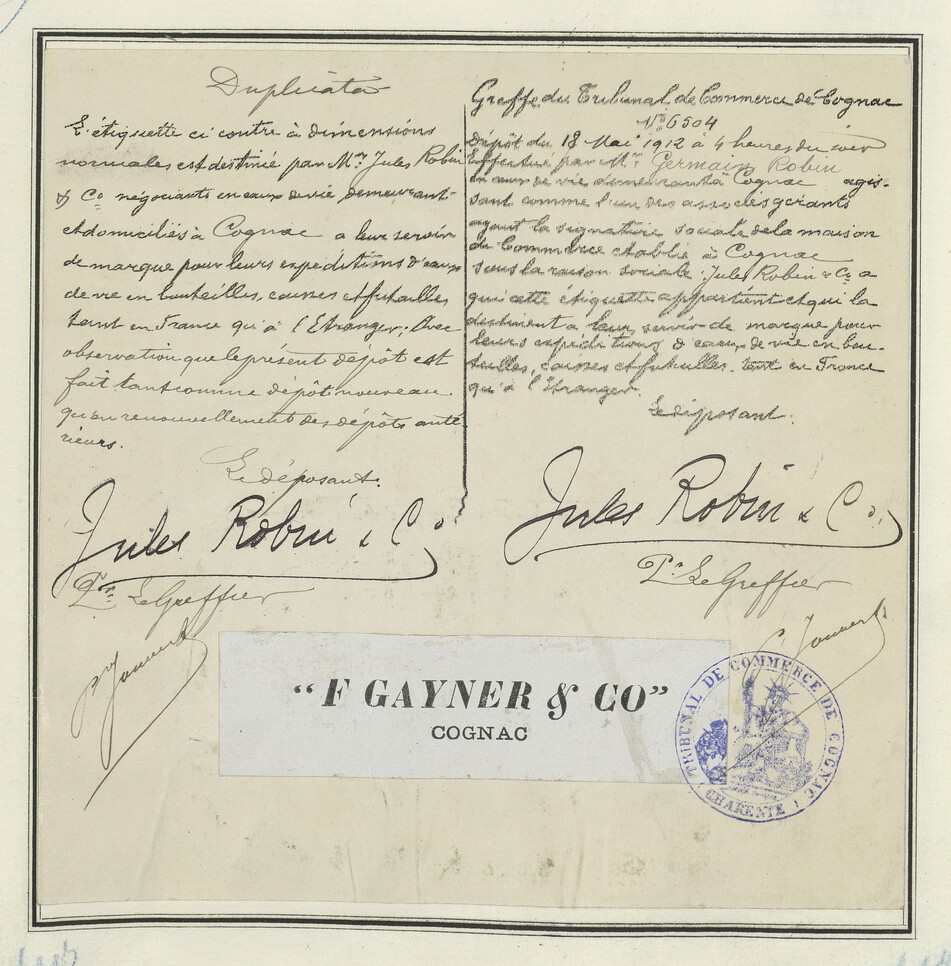 Duplicata
L'étiquette ci contre à dimensions
normales est destinée par Mrs Jules Robin
& Co négociants en eaux de vie demeurant
et domiciliés à Cognac a leur servir
de marque pour leurs expéditions d'eaux
de vie en bouteilles, caisses et futailles
tant en France qu'à l'Etranger; Avec
observation que le présent dépôt est
fait tant comme dépôt nouveau
qu'en renouvellement des dépôts anté-
rieurs.
Le déposant.
Jules Robin & Co.
Pr Le Greffier
Greffe du Tribunal de Commerce de Cognac
No 6504
Dépôt du 18 Mai 1912 à 4 heures du soir
Effectué par Mr Germain Robin
en eaux de vie demeurant à Cognac agis-
sant comme l'un des associés gérants
ayant la signature sociale de la maison
de Commerce établie à Cognac
sous la raison sociale: Jules Robin & Co a
qui cette étiquette appartient et qui la
destinent a leur servir de marque pour
leurs expéditions d'eaux de vie en bou-
teilles, caisses et futailles tant en France
qu'à l'Etranger.
Le déposant.
Jules Robin & Co.
Pr Le Greffier
"F GAYNER & CO"
COGNAC
TRIBUNAL DE COMMERCE DE COGNAC
CHARENTE